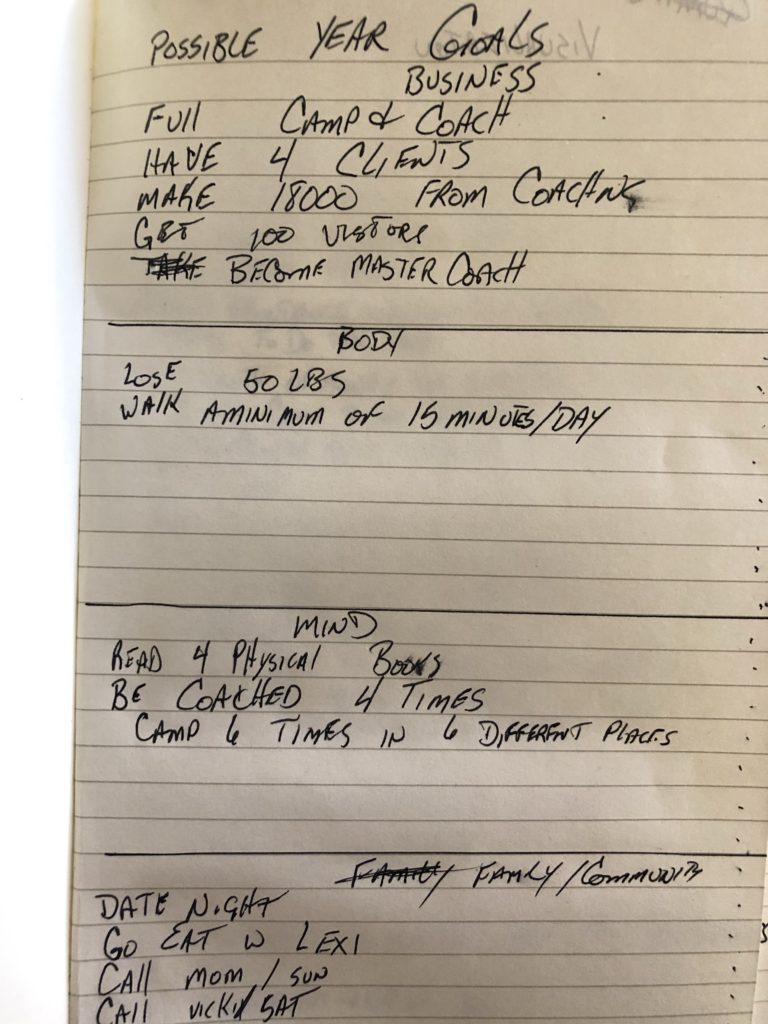 POSSIBLE YEAR GOALS
BUSINESS
FULL CAMP & COACH
HAVE 4 CLIENTS
MAKE 18000 FROM COACHNG
GET 100 VISTORS
BECOME MASTER COACH
BODY
LOSE 50 LBS
WALK A MINIMUM OF 15 MINUTES/DAY
MIND
READ 4 PHYSICAL BOOKS
BE COACHED 4 TIMES
CAMP 6 TIMES IN 6 DIFFERENT PLACES
FAMILY/COMMUNITY
DATE NIGHT
GO EAT W LEXI
CALL MOM / SUN
CALL VICKI/ SAT